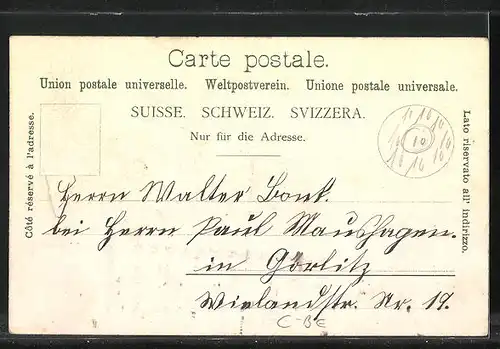 Carte postale.
Union postale universelle. Weltpostverein. Unione postale universale.
SUISSE. SCHWEIZ. SVIZZERA.
Nur für die Adresse.
Côté réservé à l'adresse.
Lato riservato all' indirizzo.
10 10 10 10 10 10 10 10 10 10
Herrn Walter Bonk.
bei Herrn Paul Maushagen.
in Görlitz
Wielandstr. Nr. 19.
C-BE